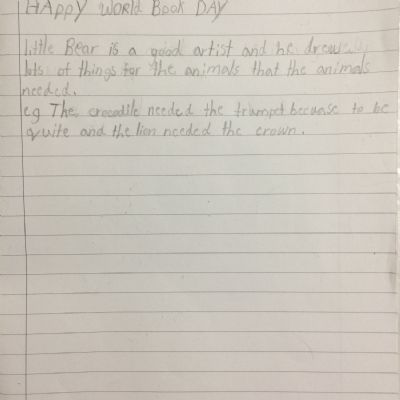 HAppy WORld Book DAY
little Bear is a good artist and he drew
lots of things for the animals that the animals
needed.
eg The crocodile needed the trumpet becuase to be
quite and the lion needed the crown.